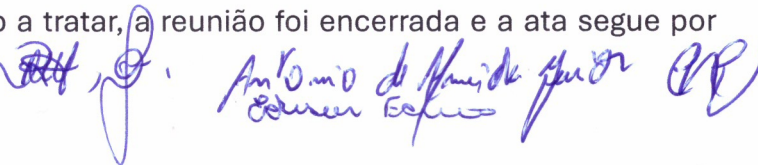 o a tratar, a reunião foi encerrada e a ata segue por
Antônio de Almeida Junior